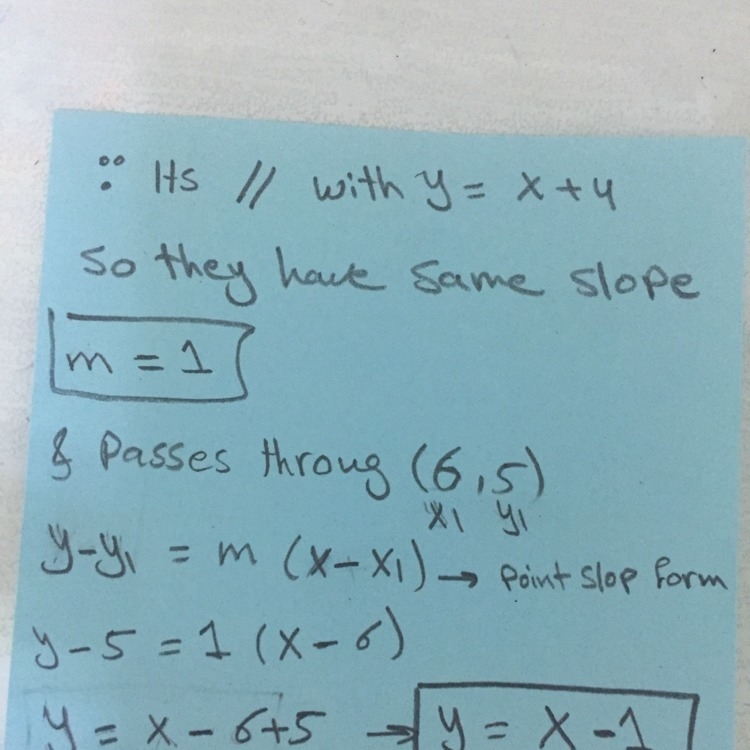 ∵ Its // with y = x + 4
So they have same slope
m = 1
& Passes throug (6, 5)
x1 y1
y-y1 = m (x-x1) → Point Slop Form
y-5 = 1 (x-6)
y = x-6+5 → y = x-1